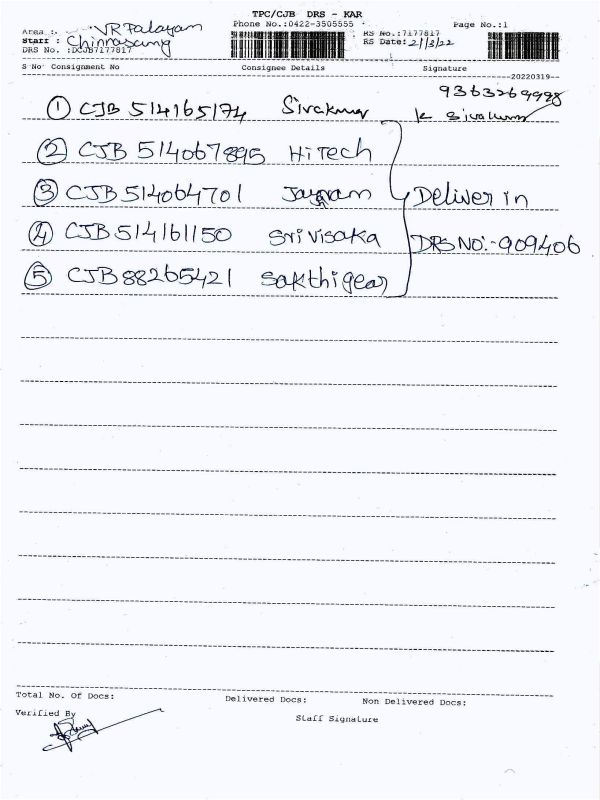 TPC/CJB DRS - KAR
Phone No.:0422-3505555
Page No.:1
Area : VR Palayam
Staff : Chinnasamy
DRS No. :DCJB7177817
RS No.:7177817
RS Date: 21/3/22
S No Consignment No Consignee Details Signature
20220319
① CJB 514165174 Sivakumar 9363269998
K Sivakumar
② CJB 514067895 HiTech
③ CJB 514064701 Jayram Deliver in
④ CJB 514161150 Sri Visaka DRS NO:- 909406
⑤ CJB 88265421 Sakthi gear
Total No. Of Docs: Delivered Docs: Non Delivered Docs:
Verified By Staff Signature